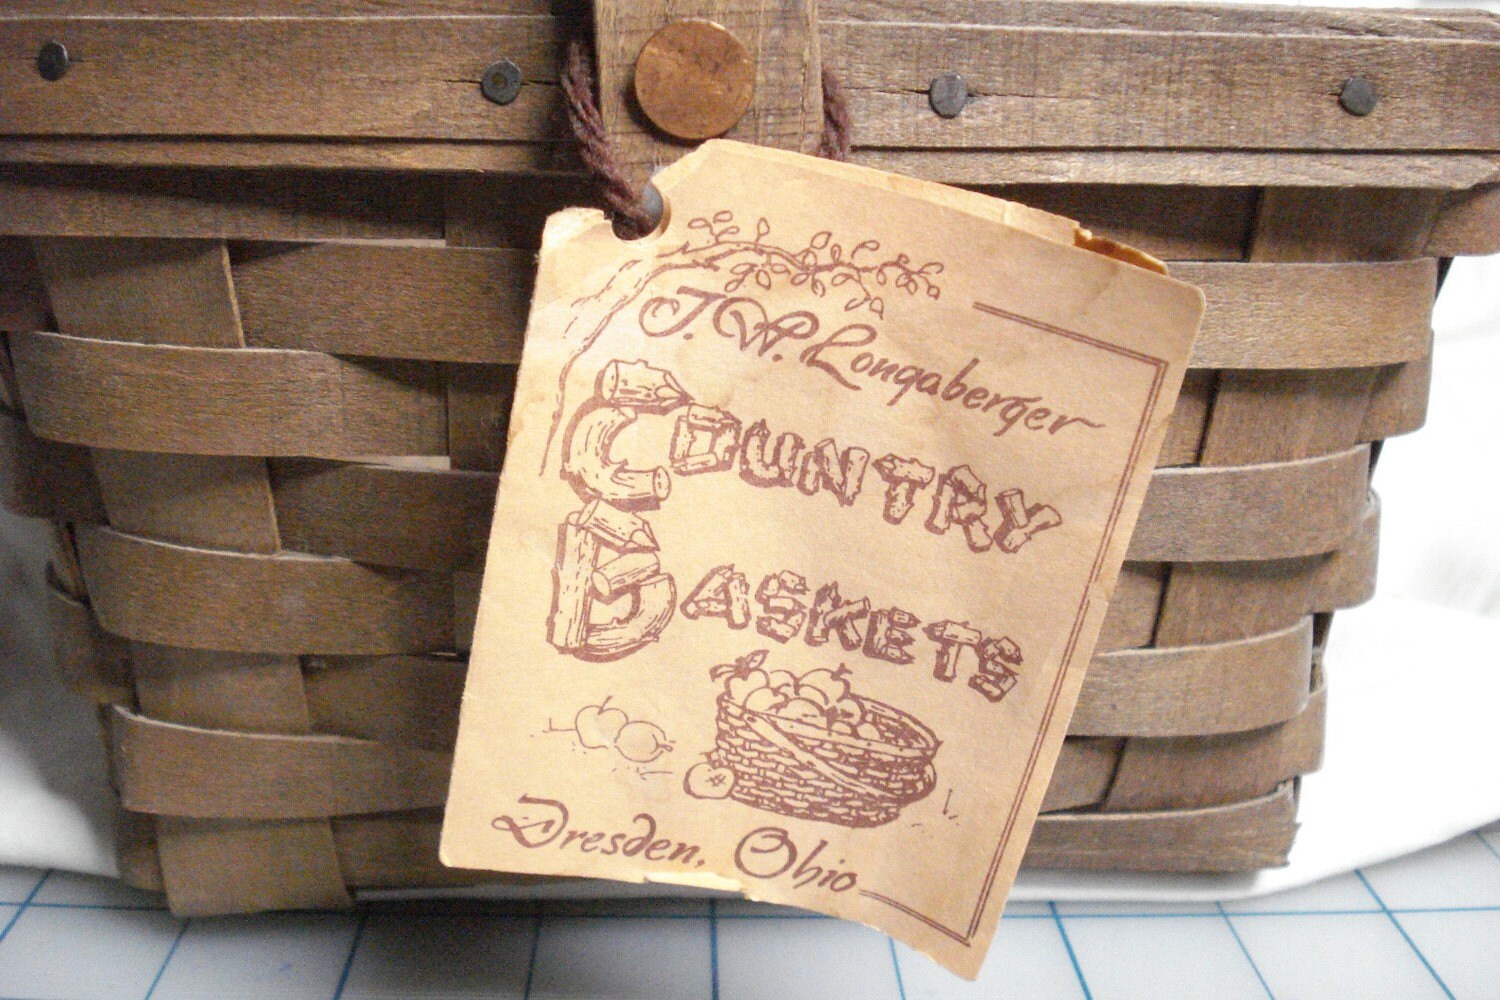 J.W. Longaberger
COUNTRY
BASKETS
Dresden, Ohio